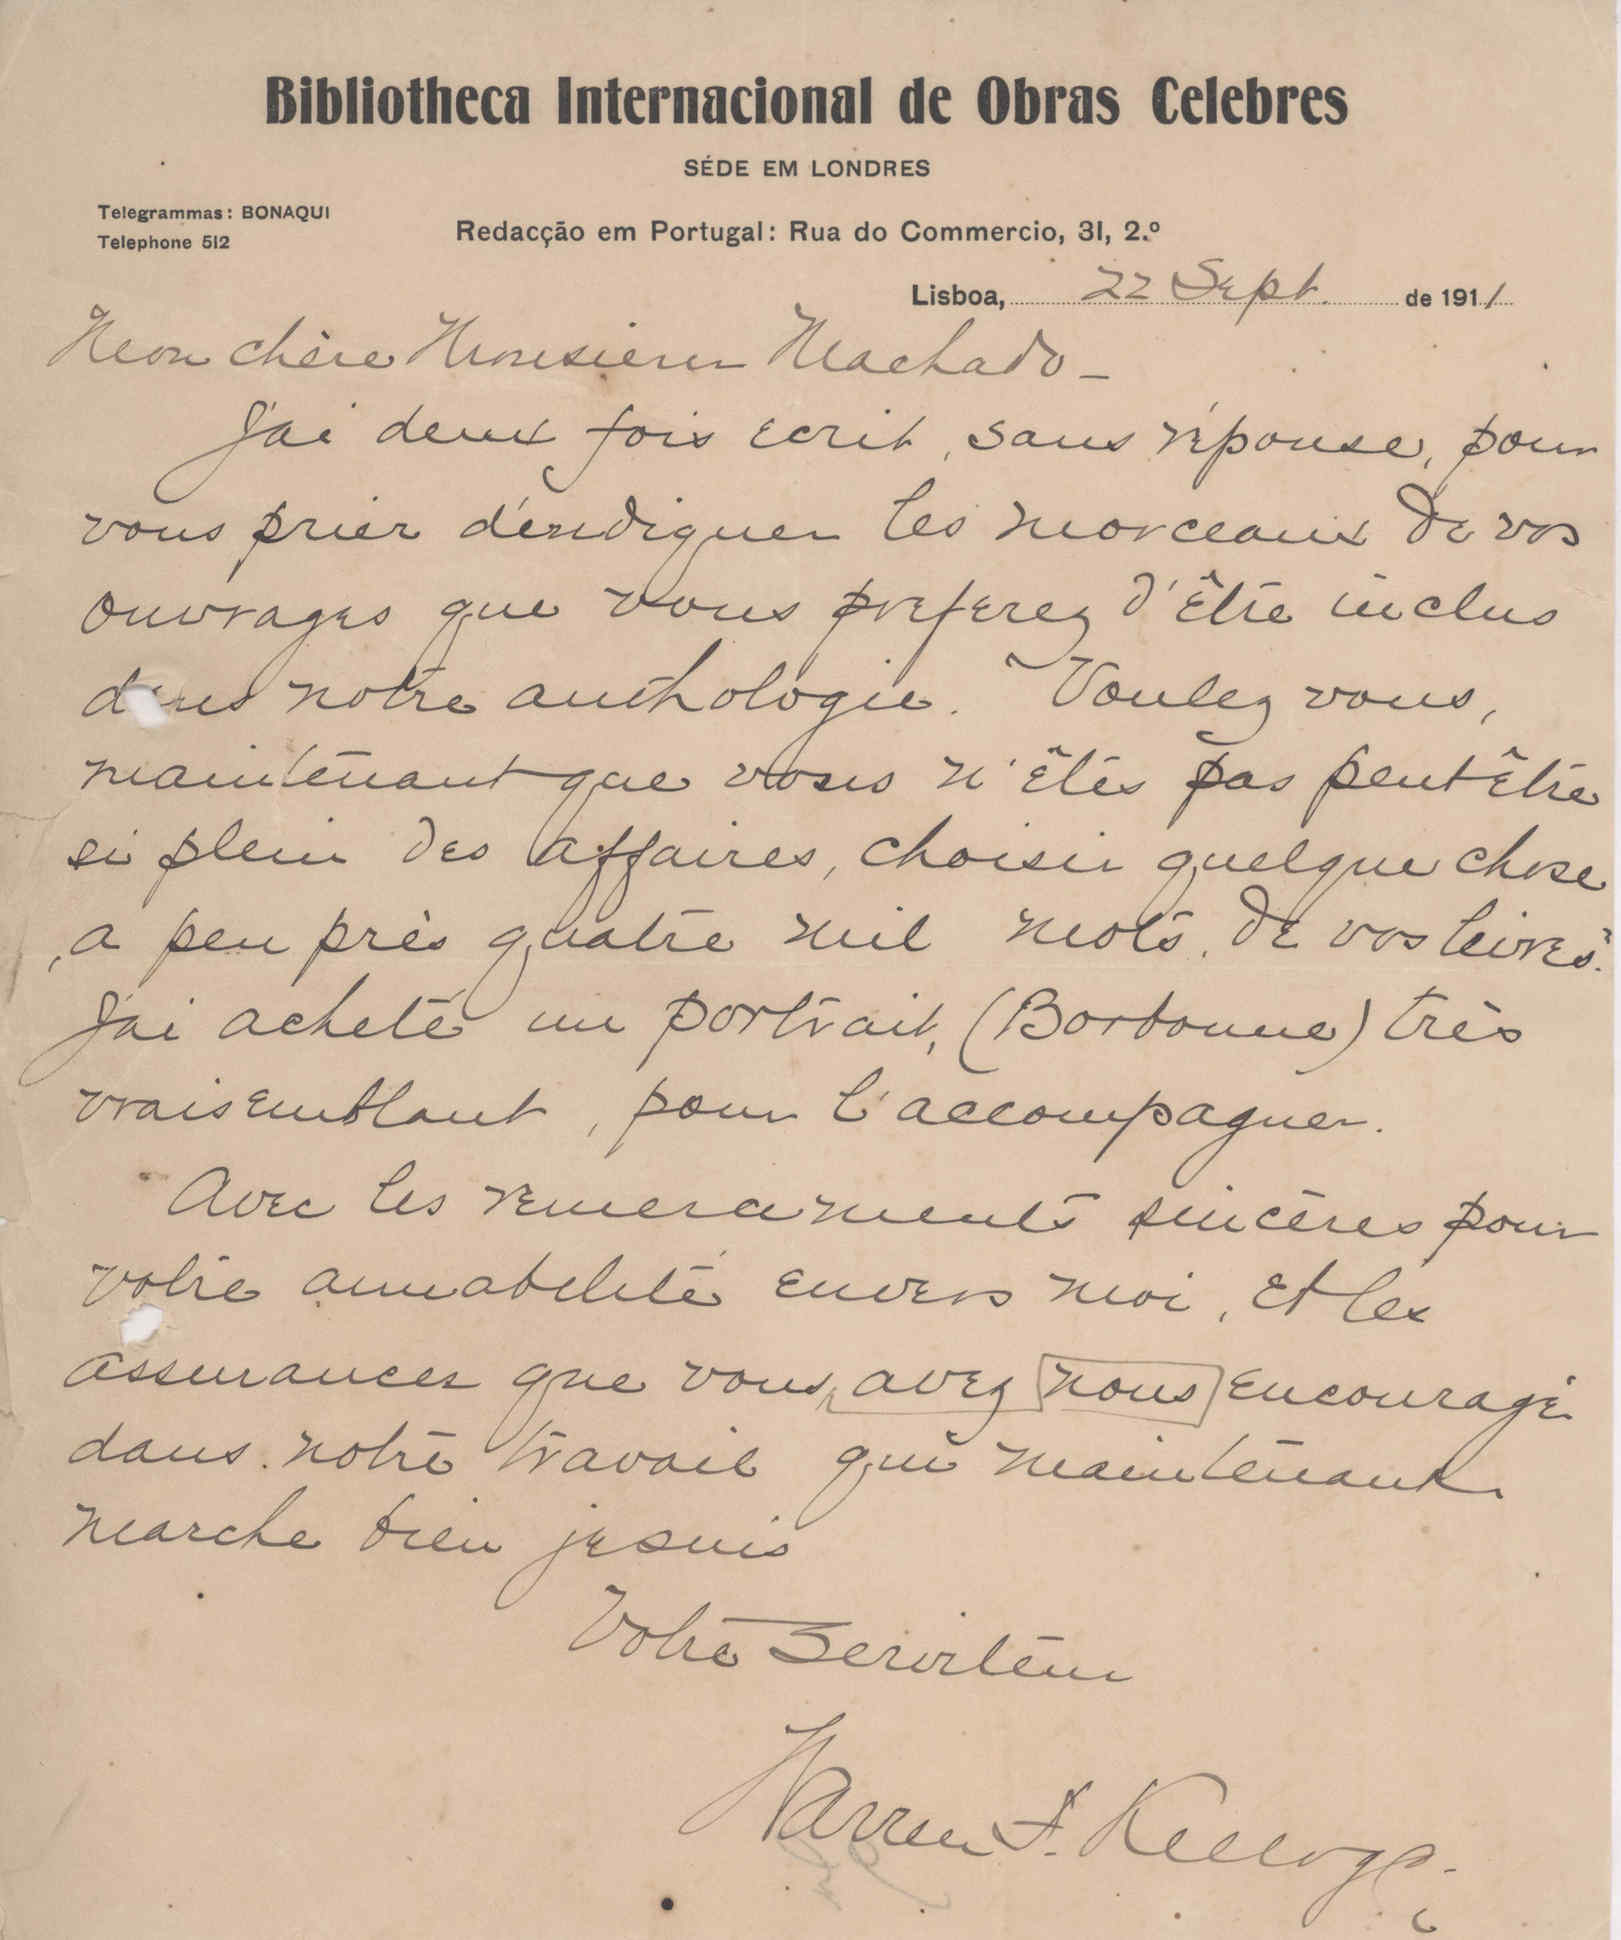 Bibliotheca Internacional de Obras Celebres
SÉDE EM LONDRES
Telegrammas: BONAQUI
Telephone 512
Redacção em Portugal: Rua do Commercio, 31, 2.º
Lisboa, 22 Sept. de 1911
Mon chère Monsieur Machado -
J'ai deux fois ecrit, sans réponse, pour
vous prier d'endiquer les morceaux de vos
ouvrages que vous preferez d'être inclus
dans notre anthologie. Voulez vous,
maintenant que vous n'êtes pas peut être
si plein des affaires, choisir quelque chose
, a peu près quatre mil mots, de vos livres.
J'ai acheté un portrait, (Borbonne) très
vraisemblant, pour l'accompagner.
Avec les remerciments sincères pour
votre amabilité envers moi, et les
assurances que vous avez nous encouragé
dans notre travail qui maintenant
marche bien je suis
Votre Serviteur
Warren F. Kellogg.